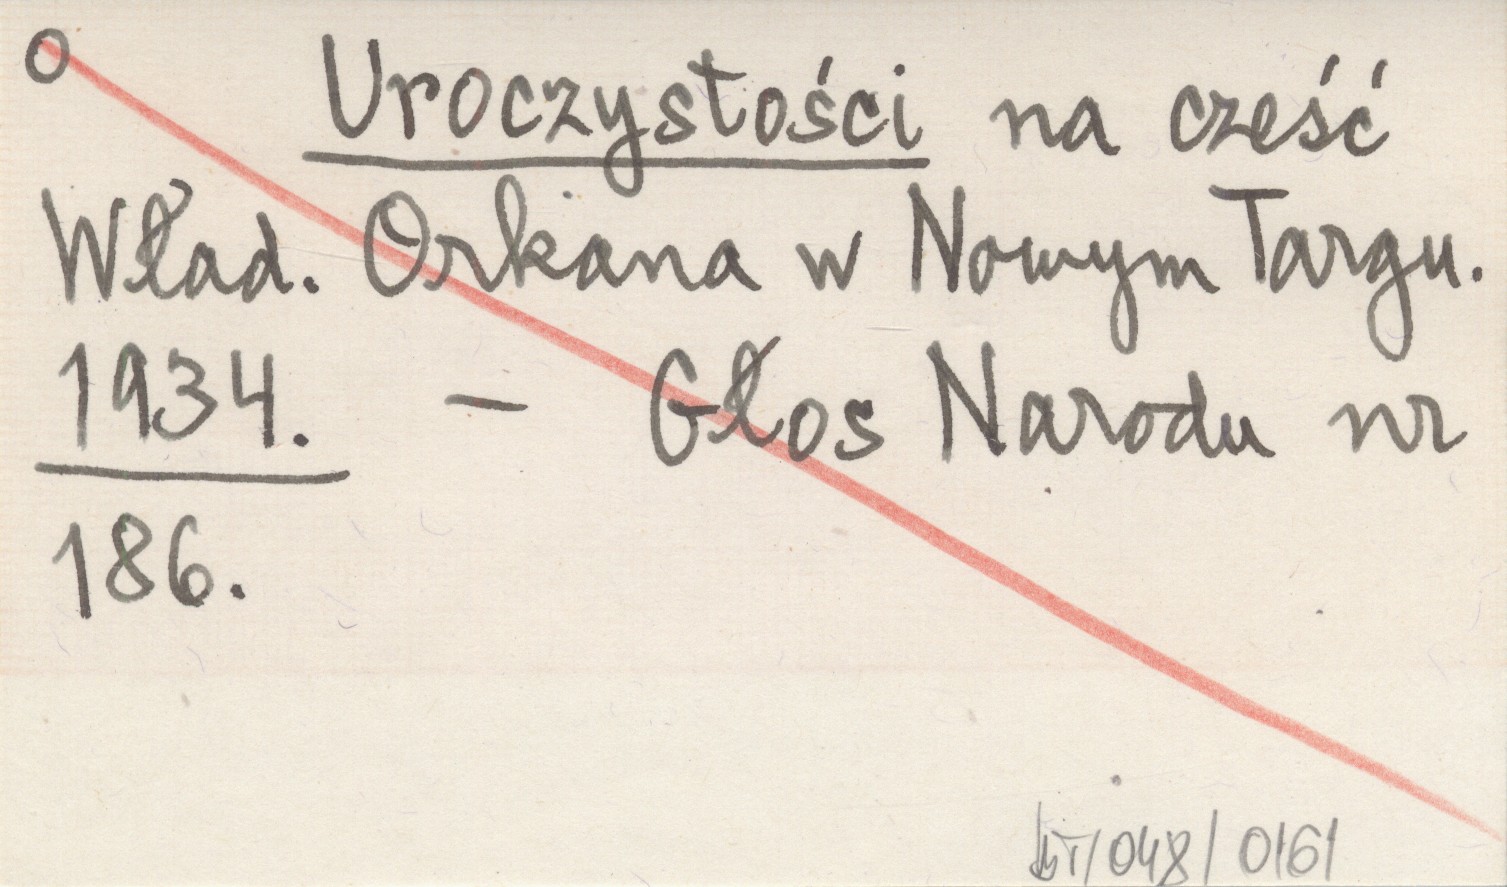 O
Uroczystości na cześć
Wład. Orkana w Nowym Targu.
1934. – Głos Narodu nr
186.
/048/0161